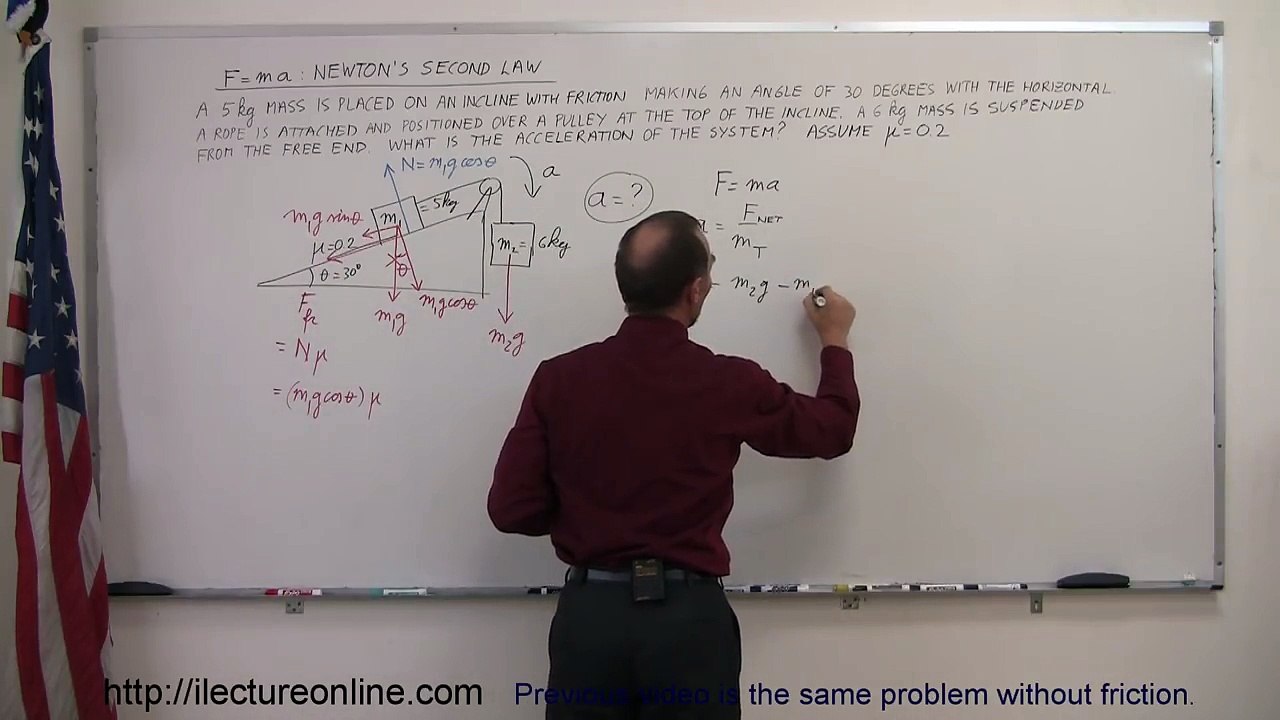 F = ma : NEWTON'S SECOND LAW
A 5 kg MASS IS PLACED ON AN INCLINE WITH FRICTION MAKING AN ANGLE OF 30 DEGREES WITH THE HORIZONTAL.
A ROPE IS ATTACHED AND POSITIONED OVER A PULLEY AT THE TOP OF THE INCLINE. A 6 kg MASS IS SUSPENDED
FROM THE FREE END. WHAT IS THE ACCELERATION OF THE SYSTEM? ASSUME μ = 0.2
N = m₁g cosθ
a
m₁ = 5kg
m₁g sinθ
μ=0.2
θ = 30°
θ
m₂ = 6kg
m₁g cosθ
m₁g
m₂g
F_fr
= Nμ
= (m₁g cosθ) μ
a = ?
F = ma
a = F_NET / m_T
m₂g - m₁
http://ilectureonline.com
Previous video is the same problem without friction.